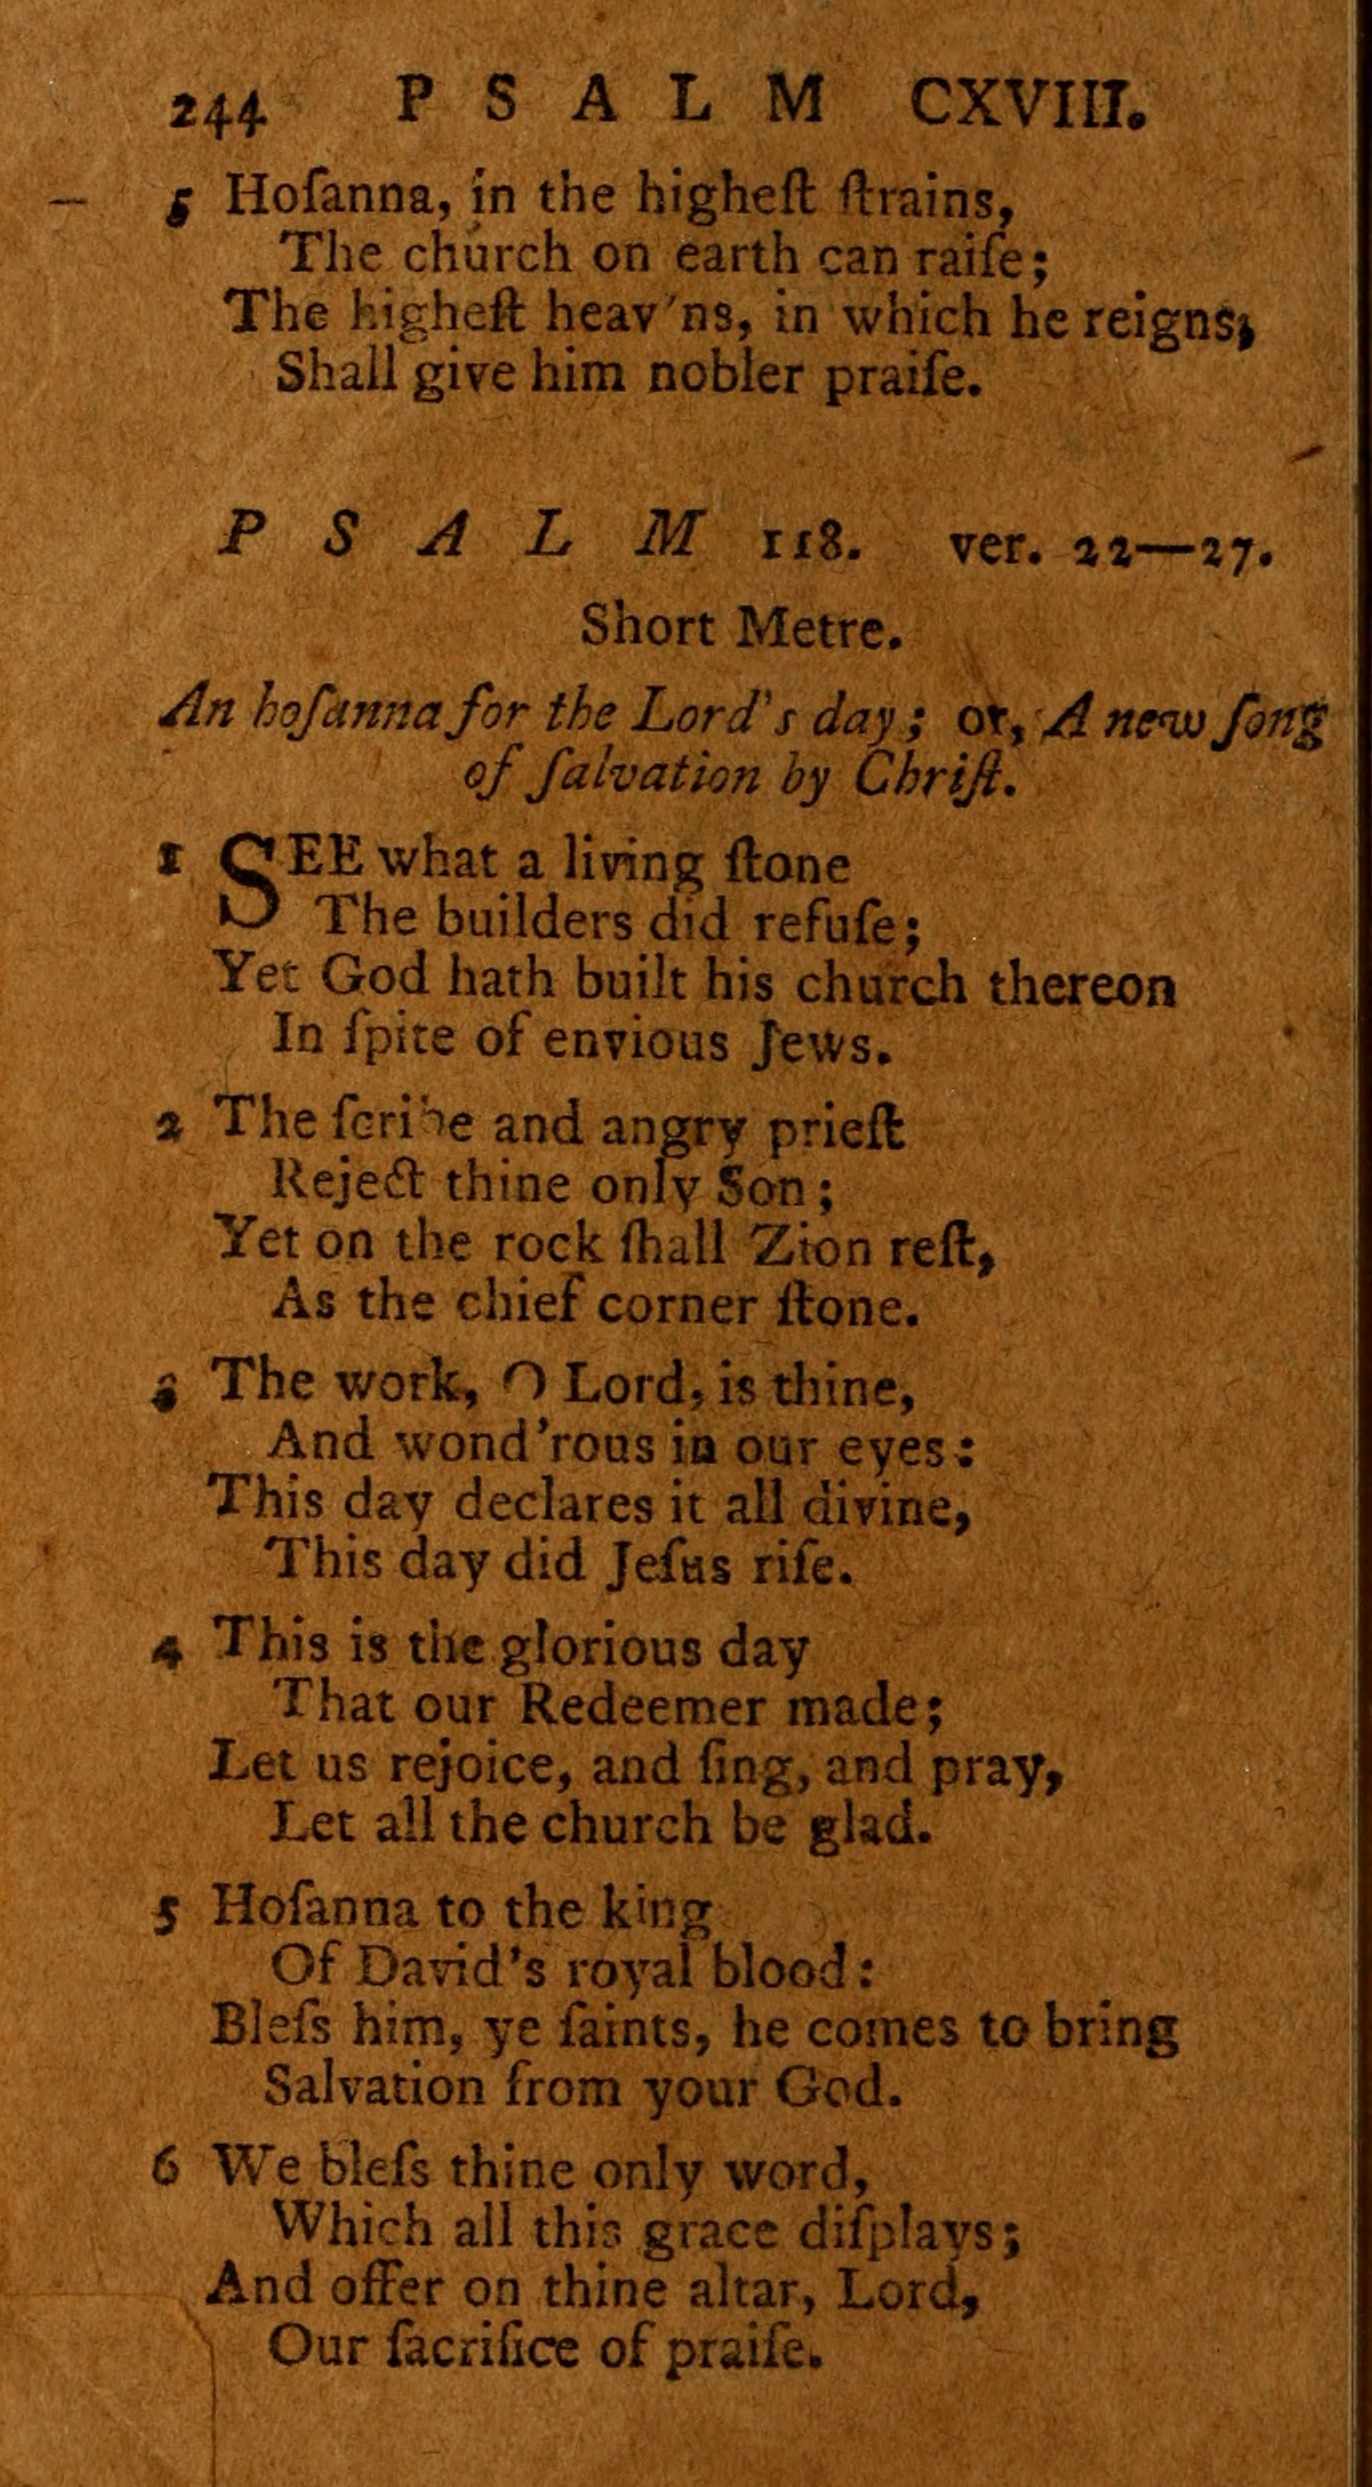 244 PSALM CXVIII.
5 Hoſanna, in the higheſt ſtrains,
The church on earth can raiſe;
The higheſt heav'ns, in which he reigns,
Shall give him nobler praiſe.
PSALM 118. ver. 22—27.
Short Metre.
An hoſanna for the Lord's day; or, A new ſong
of ſalvation by Chriſt.
1 SEE what a living ſtone
The builders did refuſe;
Yet God hath built his church thereon
In ſpite of envious Jews.
2 The ſcribe and angry prieſt
Reject thine only Son;
Yet on the rock ſhall Zion reſt,
As the chief corner ſtone.
3 The work, O Lord, is thine,
And wond'rous in our eyes:
This day declares it all divine,
This day did Jeſus riſe.
4 This is the glorious day
That our Redeemer made;
Let us rejoice, and ſing, and pray,
Let all the church be glad.
5 Hoſanna to the king
Of David's royal blood:
Bleſs him, ye ſaints, he comes to bring
Salvation from your God.
6 We bleſs thine only word,
Which all this grace diſplays;
And offer on thine altar, Lord,
Our ſacrifice of praiſe.